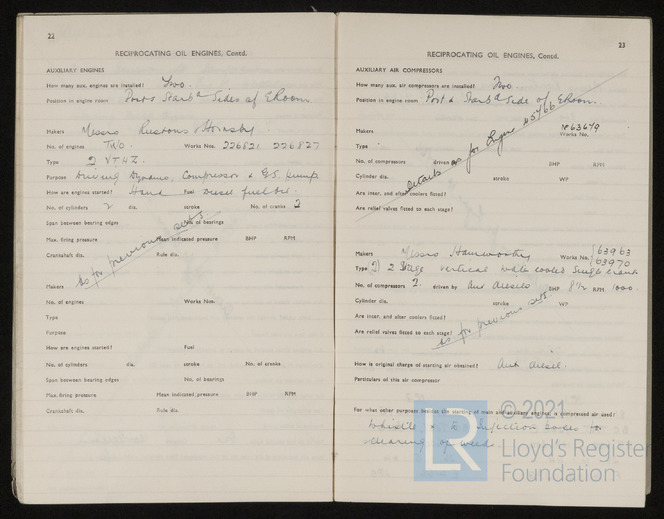 22
RECIPROCATING OIL ENGINES, Contd.
AUXILIARY ENGINES
How many aux. engines are installed? Two.
Position in engine room Port & Starbd Sides of E Room
Makers Messrs Rustons & Hornsby
No. of engines TWO. Works Nos. 226821 226827
Type 2 VTHZ.
Purpose Driving Dynamo, Compressor & G.S. Pump.
How are engines started? Hand Fuel Diesel fuel oil.
No. of cylinders 2 dia. stroke No. of cranks 2
Span between bearing edges No. of bearings
Max. firing pressure Mean indicated pressure BHP RPM
Crankshaft dia. Rule dia.
as for previous sets
Makers
No. of engines Works Nos.
Type
Purpose
How are engines started? Fuel
No. of cylinders dia. stroke No. of cranks
Span between bearing edges No. of bearings
Max. firing pressure Mean indicated pressure BHP RPM
Crankshaft dia. Rule dia.
23
RECIPROCATING OIL ENGINES, Contd.
AUXILIARY AIR COMPRESSORS
How many aux. air compressors are installed? Two.
Position in engine room Port & Starbd Side of E Room.
Makers Works No. No 63649
Type
No. of compressors driven BHP RPM
details as for
Cylinder dia. stroke WP
Are inter, and after coolers fitted?
Are relief valves fitted to each stage?
Makers Messrs Hamworthy Works No. 63963
63970
Type 2 Stage vertical water cooled Single crank
No. of compressors 2. driven by Aux diesels BHP 8½ RPM 1000.
Cylinder dia. stroke WP
Are inter, and after coolers fitted?
Are relief valves fitted to each stage?
as for previous sets.
How is original charge of starting air obtained? Aux diesel.
Particulars of this air compressor
For what other purposes besides the starting of main and auxiliary engines, is compressed air used?
Whistle & to injection boxes for
clearing of weed.
LR
© 2021
Lloyd's Register
Foundation